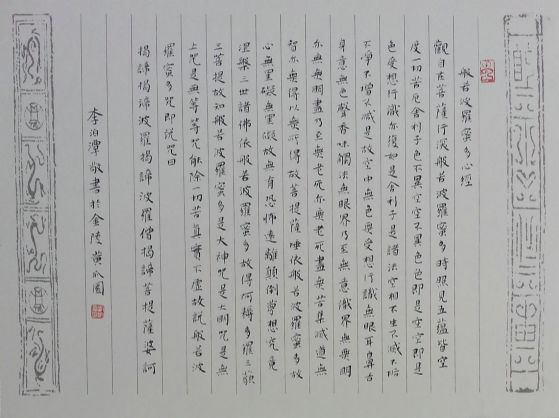 般若波羅蜜多心經
觀自在菩薩行深般若波羅蜜多時照見五蘊皆空
度一切苦厄舍利子色不異空空不異色色即是空空即是
色受想行識亦復如是舍利子是諸法空相不生不滅不垢
不淨不增不減是故空中無色無受想行識無眼耳鼻舌
身意無色聲香味觸法無眼界乃至無意識界無無明
亦無無明盡乃至無老死亦無老死盡無苦集滅道無
智亦無得以無所得故菩提薩埵依般若波羅蜜多故
心無罣礙無罣礙故無有恐怖遠離顛倒夢想究竟
涅槃三世諸佛依般若波羅蜜多故得阿耨多羅三藐
三菩提故知般若波羅蜜多是大神咒是大明咒是無
上咒是無等等咒能除一切苦真實不虛故說般若波
羅蜜多咒即說咒曰
揭諦揭諦波羅揭諦波羅僧揭諦菩提薩婆訶
李泊潭敬書於金陵黃瓜園